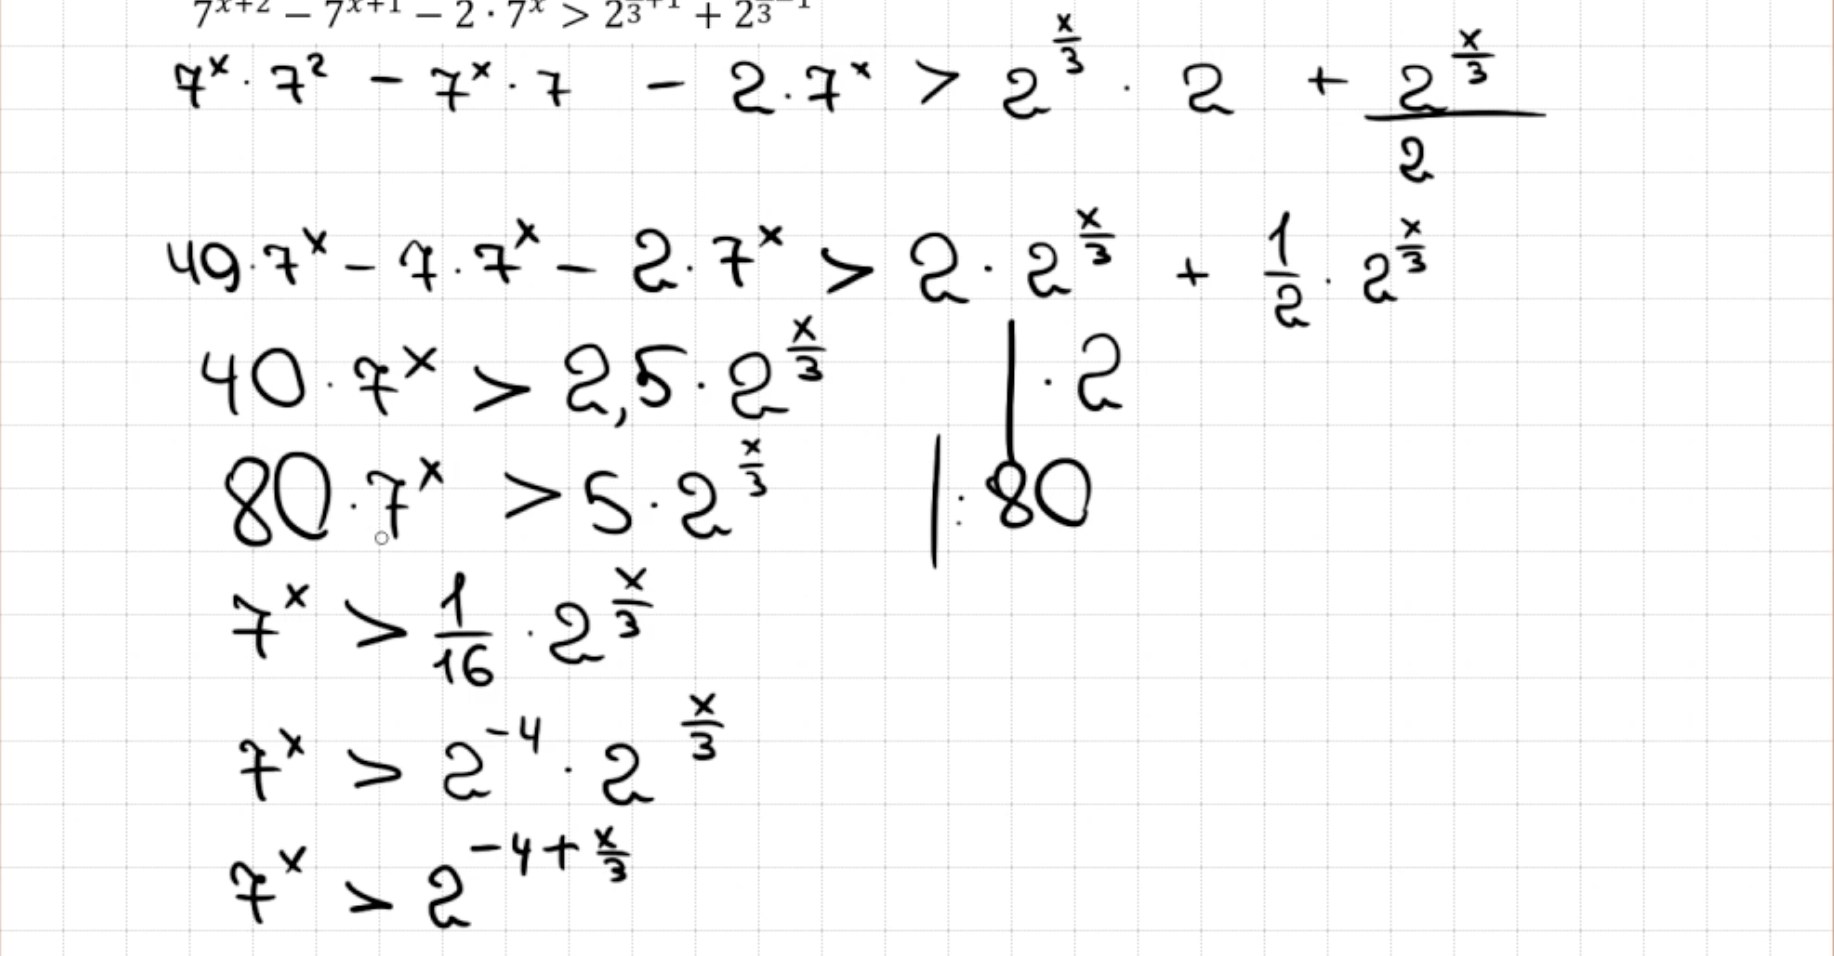 7^{x+2} − 7^{x+1} − 2 · 7^x > 2^{\frac{x}{3}+1} + 2^{\frac{x}{3}−1}
7^x · 7^2 − 7^x · 7 − 2 · 7^x > 2^{\frac{x}{3}} · 2 + \frac{2^{\frac{x}{3}}}{2}
49 · 7^x − 7 · 7^x − 2 · 7^x > 2 · 2^{\frac{x}{3}} + \frac{1}{2} · 2^{\frac{x}{3}}
40 · 7^x > 2,5 · 2^{\frac{x}{3}} | · 2
80 · 7^x > 5 · 2^{\frac{x}{3}} | : 80
7^x > \frac{1}{16} · 2^{\frac{x}{3}}
7^x > 2^{−4} · 2^{\frac{x}{3}}
7^x > 2^{−4+\frac{x}{3}}